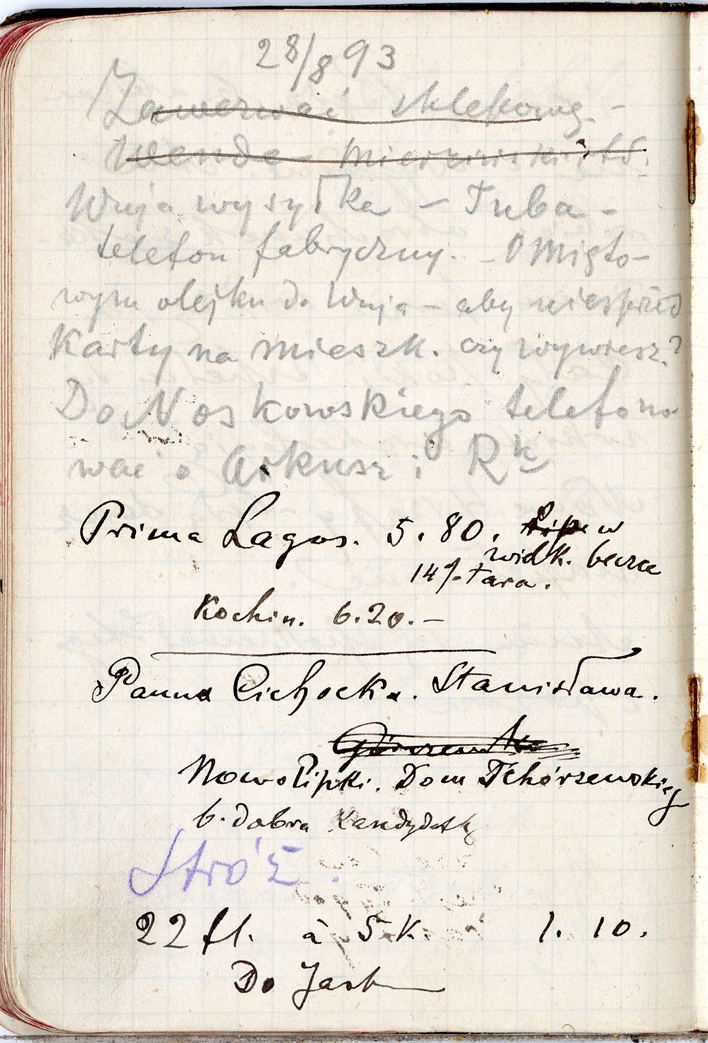 28/8 93
Zawezwać sklepową -
Wende - Mierzwiński
Wuja wysyłka - Tuba -
telefon fabryczny. - O mięto-
wym olejku do Wuja - aby nie sprzed
Karty na mieszk. czy wywiesz.?
Do Noskowskiego telefono
wać o arkusz i Rk
Prima Lagos. 5.80. w
widk. becza
14% tara.
Kochin. 6.20.-
Panna Cichocka. Stanisława.
Nowolipki. Dom Tchórzewskieg
b. dobra Kandydatk
Stróż.
22 fl. à 5 K. 1.10.
Do